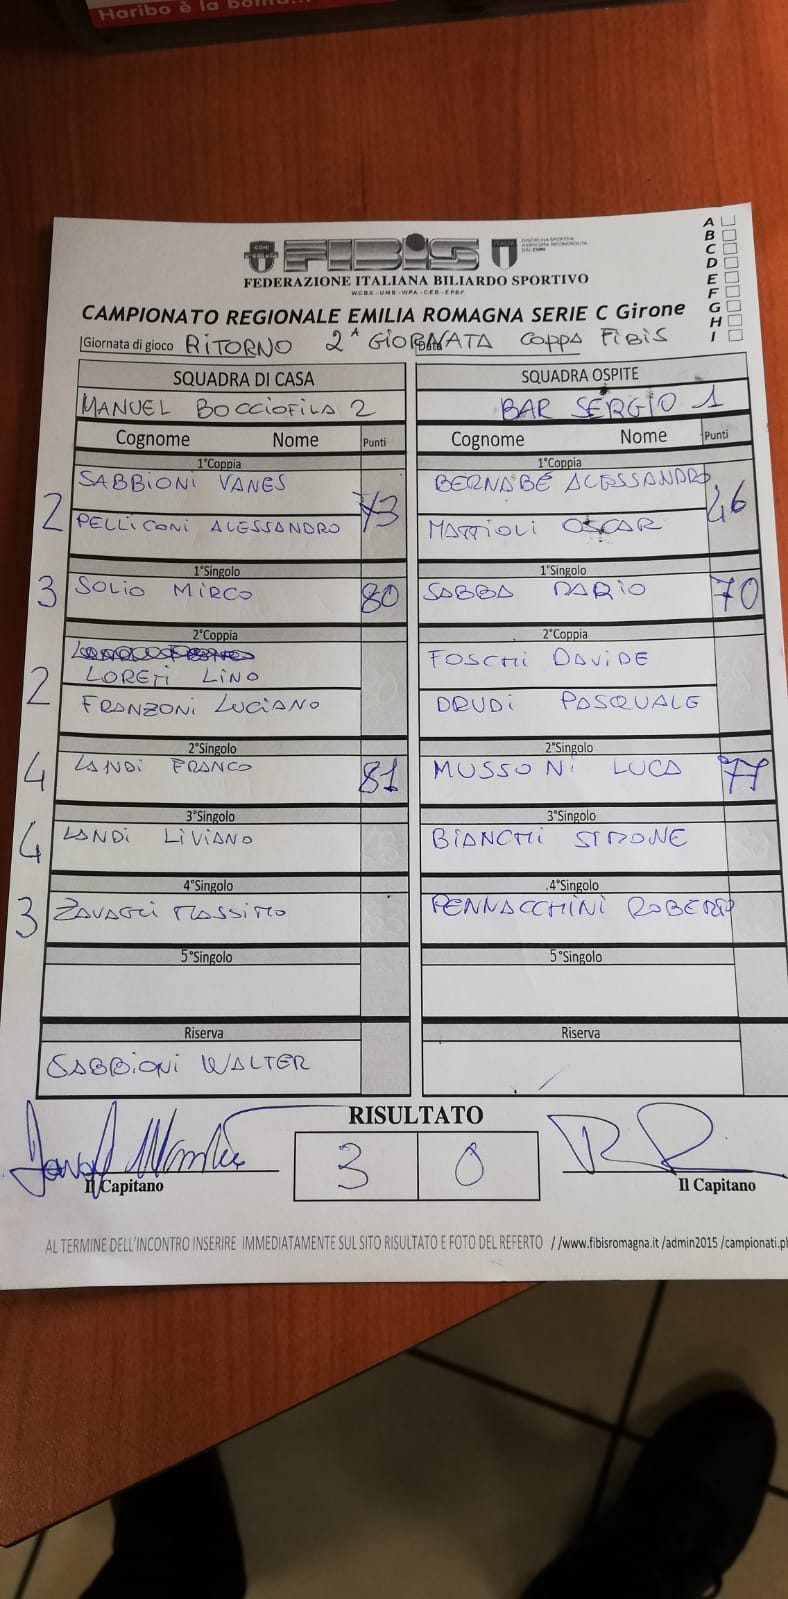 Haribo è la bontà...
A
B
C
D
E
F
G
H
I
CONI
FIBIS
ITALIA
DISCIPLINA SPORTIVA
ASSOCIATA RICONOSCIUTA
DAL CONI
FEDERAZIONE ITALIANA BILIARDO SPORTIVO
W.C.B.S. - U.M.B - W.P.A. - C.E.B. - E.P.B.F.
CAMPIONATO REGIONALE EMILIA ROMAGNA SERIE C Girone
Giornata di gioco RITORNO 2ª GIORNATA COPPA FIBIS
Data
SQUADRA DI CASA SQUADRA OSPITE
MANUEL BOCCIOFILA 2 BAR SERGIO 1
Cognome Nome Punti Cognome Nome Punti
1°Coppia 1°Coppia
SABBIONI VANES BERNABÈ ALESSANDRO
2 73 46
PELLICONI ALESSANDRO MATTIOLI OSCAR
1°Singolo 1°Singolo
3 SOLIO MIRCO 80 SABBA DARIO 70
2°Coppia 2°Coppia
2 LORETI LINO FOSCHI DAVIDE
FRANZONI LUCIANO DRUDI PASQUALE
2°Singolo 2°Singolo
4 LANDI FRANCO 81 MUSSONI LUCA 77
3°Singolo 3°Singolo
4 LANDI LIVIANO BIANCHI SIMONE
4°Singolo .4°Singolo
3 ZAVAGLI MASSIMO PENNACCHINI ROBERTO
5°Singolo 5°Singolo
Riserva Riserva
SABBIONI WALTER
RISULTATO
3 0
Il Capitano Il Capitano
AL TERMINE DELL'INCONTRO INSERIRE IMMEDIATAMENTE SUL SITO RISULTATO E FOTO DEL REFERTO //www.fibisromagna.it /admin2015 /campionati.ph